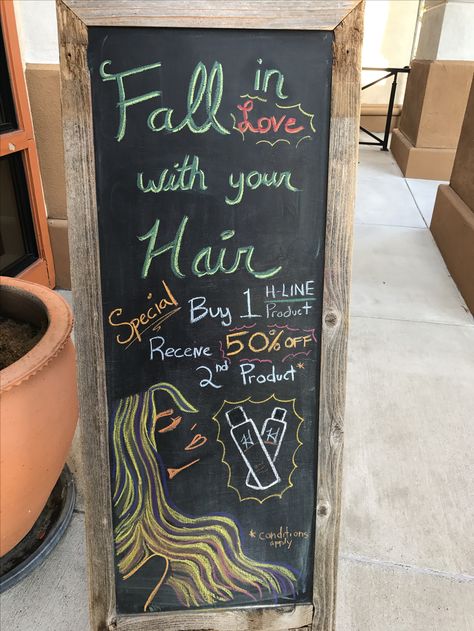 Fall in
Love
with your
Hair
Special Buy 1 H-LINE
Product
Receive 50% OFF
2nd Product*
*conditions
apply